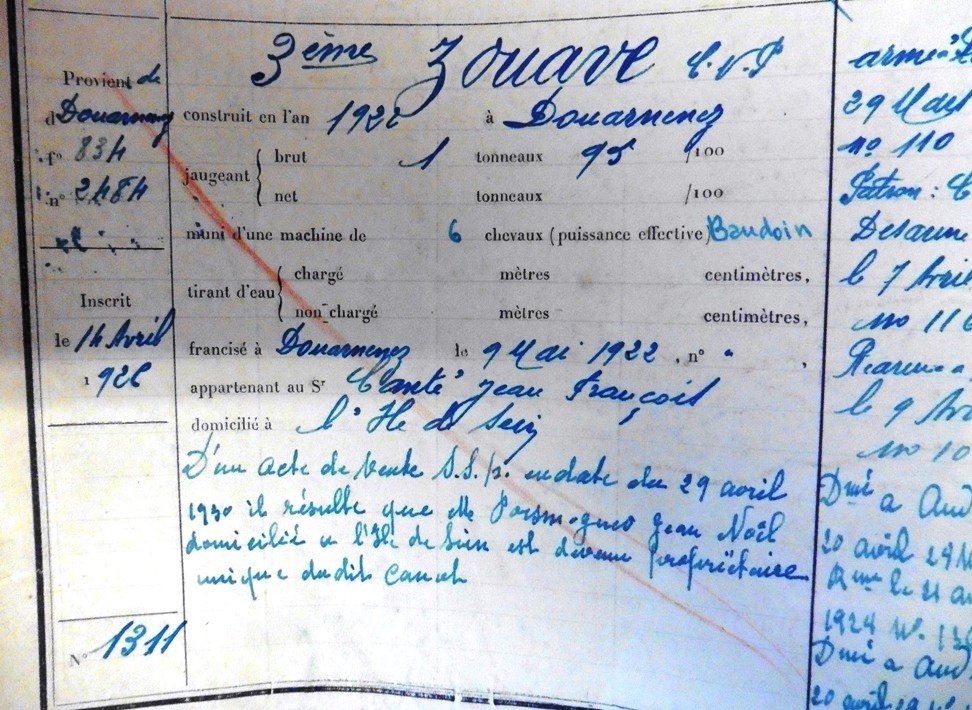 Provient de
Douarnenez
f° 834
n° 2484
Inscrit
le 14 Avril
1926
N° 1311
3ème Zouave C.N.P
construit en l'an 1922 à Douarnenez
jaugeant { brut 1 tonneaux 95 /100
net tonneaux /100
muni d'une machine de 6 chevaux (puissance effective) Baudoin
tirant d'eau { chargé mètres centimètres,
non chargé mètres centimètres,
francisé à Douarnenez le 9 Mai 1922, n° "
appartenant au Sr Jean François
domicilié à l'Ile de Sein
D'un acte de vente S.S.p. en date du 29 avril
1930 il résulte que Mr Jean Noël
domicilié à l'Ile de Sein est devenu propriétaire
unique dudit canot
armé
29 Mars
n° 110
Patron : C
Desarme
le 7 Avri
no 116
le 9 Avr
no 10
Dmé a Aud
20 avril 29 N
le 21 a
N° 13
Dmé a Aud
20 avril 29 N°